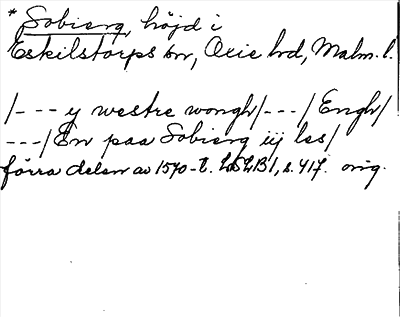 * Sobierg, höjd i
Eskilstorps sn, Oxie hd, Malm. l.
/--- y westre wongh/---/Engh/
---/En paa Sobierg iij las/
förra delen av 1570-t. LSLB1, s. 417. orig.